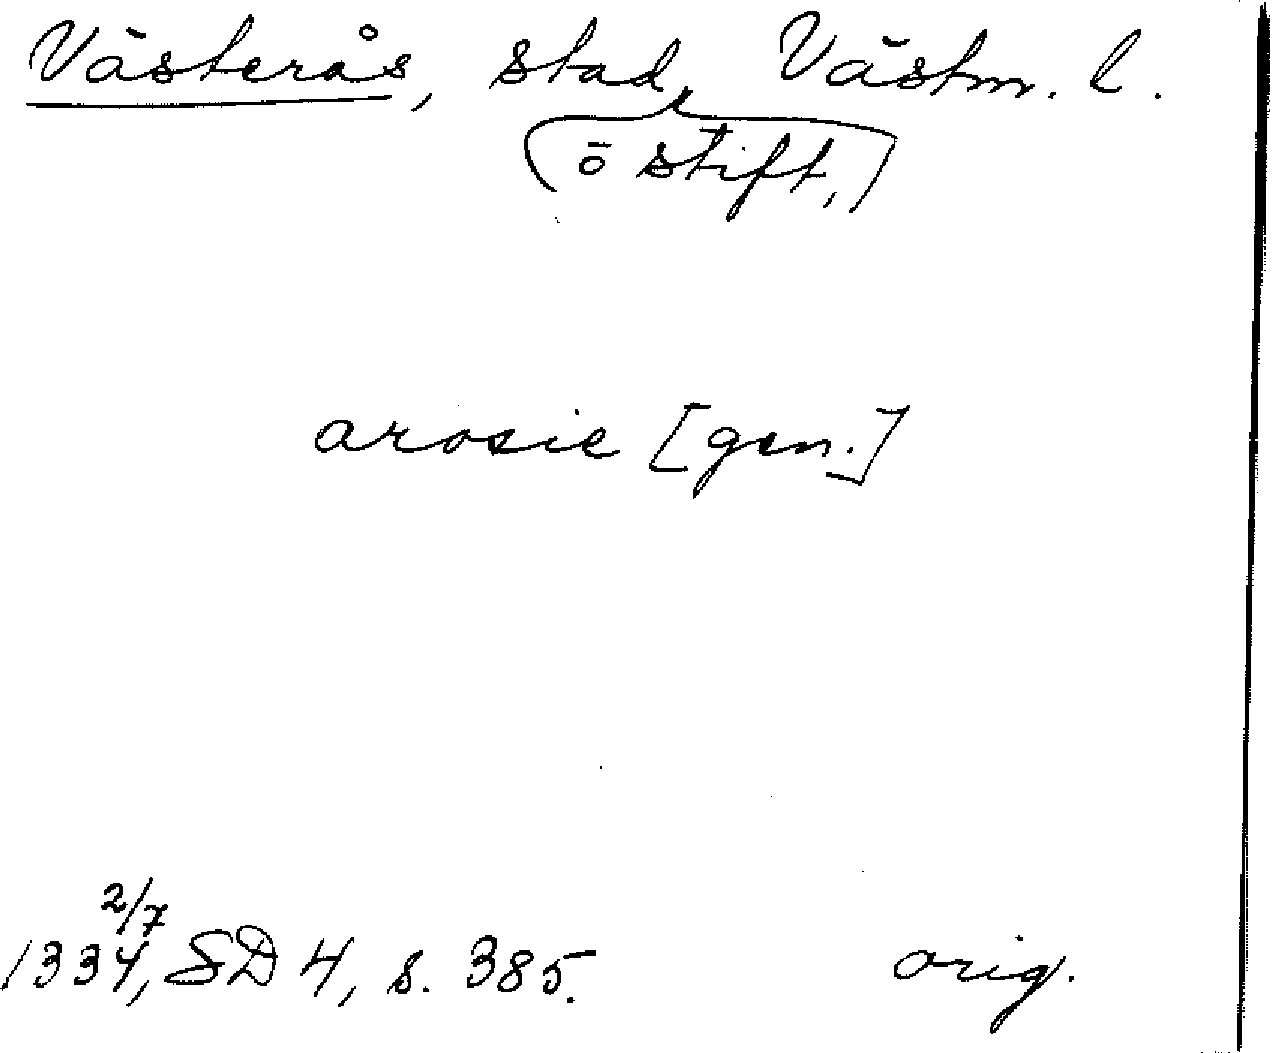 Västerås, stad, Västm. l.
(ö stift,)
arosie [gen.]
2/7
1334, SD 4, s. 385.
orig.